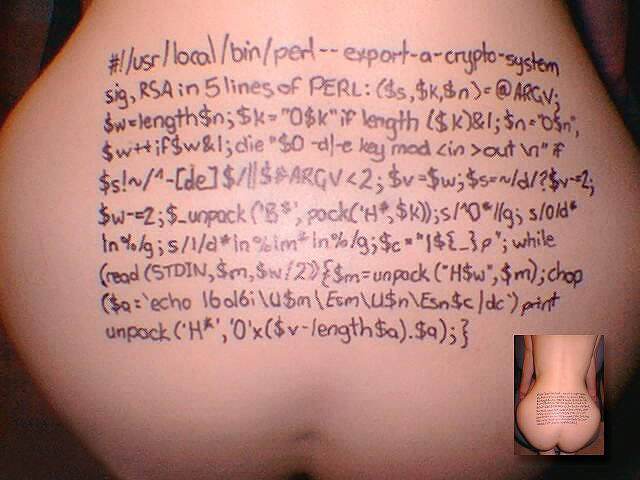 #!/usr/local/bin/perl -- export-a-crypto-system
sig, RSA in 5 lines of PERL: ($s,$k,$n)=@ARGV;
$w=length$n;$k="0$k"if length ($k)&1;$n="0$n",
$w++if$w&1;die "$0 -d|-e key mod <in >out \n" if
$s!~/^-[de]$/||$#ARGV<2;$v=$w;$s=~/d/?$v-=2:
$w-=2;$_=unpack('B*',pack('H*',$k));s/^0*//g;s/0/d*
ln%/g;s/1/d*ln%lm*ln%/g;$c="1${_}p";while
(read (STDIN,$m,$w/2)){$m=unpack("H$w",$m);chop
($a=`echo 16o16i\U$m\Esm\U$n\Esn$c|dc`)print
unpack('H*','0'x($v-length$a).$a);}